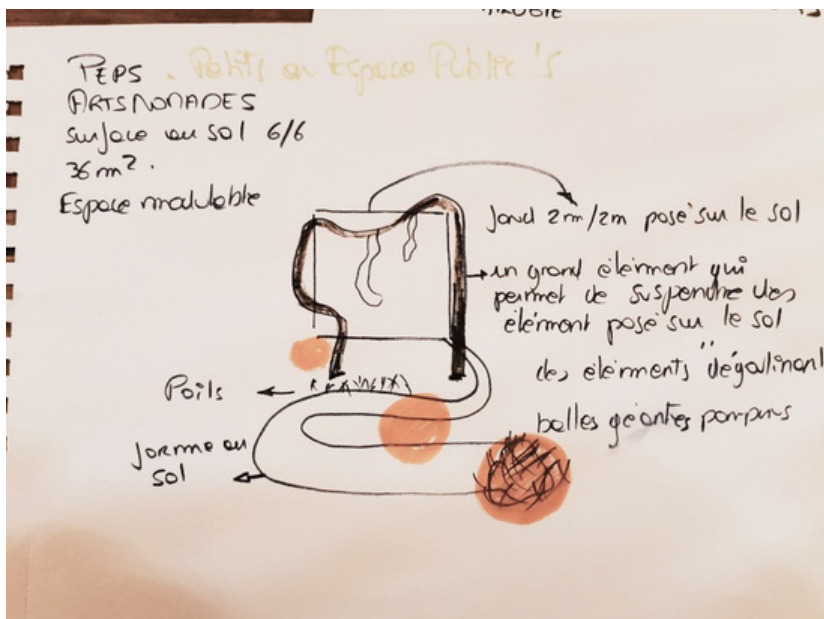 PEPS . Petits en Espace Public's
ARTS NOMADES
surface au sol 6/6
36 m².
Espace modulable
fond 2m/2m posé sur le sol
un grand élément qui
permet de suspendre des
élément posé sur le sol
des éléments "dégoulinant
balles géantes pompons
Poils
forme au
sol